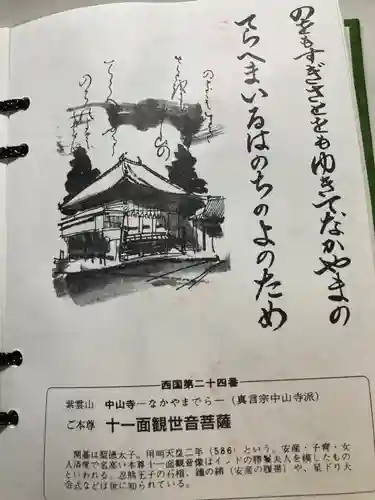 のをもすぎさとをもゆきてなかやまの
てらへまいるはのちのよのため
西国第二十四番
紫雲山 中山寺―なかやまでら―（真言宗中山寺派）
ご本尊 十一面観世音菩薩
開基は聖徳太子。用明天皇二年（586）という。安産・子育・女
人済度で名高い本尊十一面観音像はインドの勝鬘夫人を模したもの
といわれる。忍熊王子の石棺、鐘の緒（安産の腹帯）や、星下り大
会式などは世に知られている。